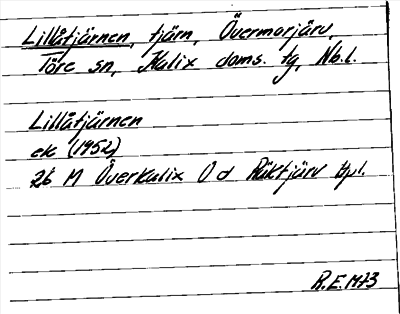 Lillåtjärnen, tjärn, Övermorjärv,
Töre sn, Kalix doms. tg, Nb.l.
Lillåtjärnen
ek (1952)
26 M Överkalix O d Räktjärv tpl.
R.E.M73